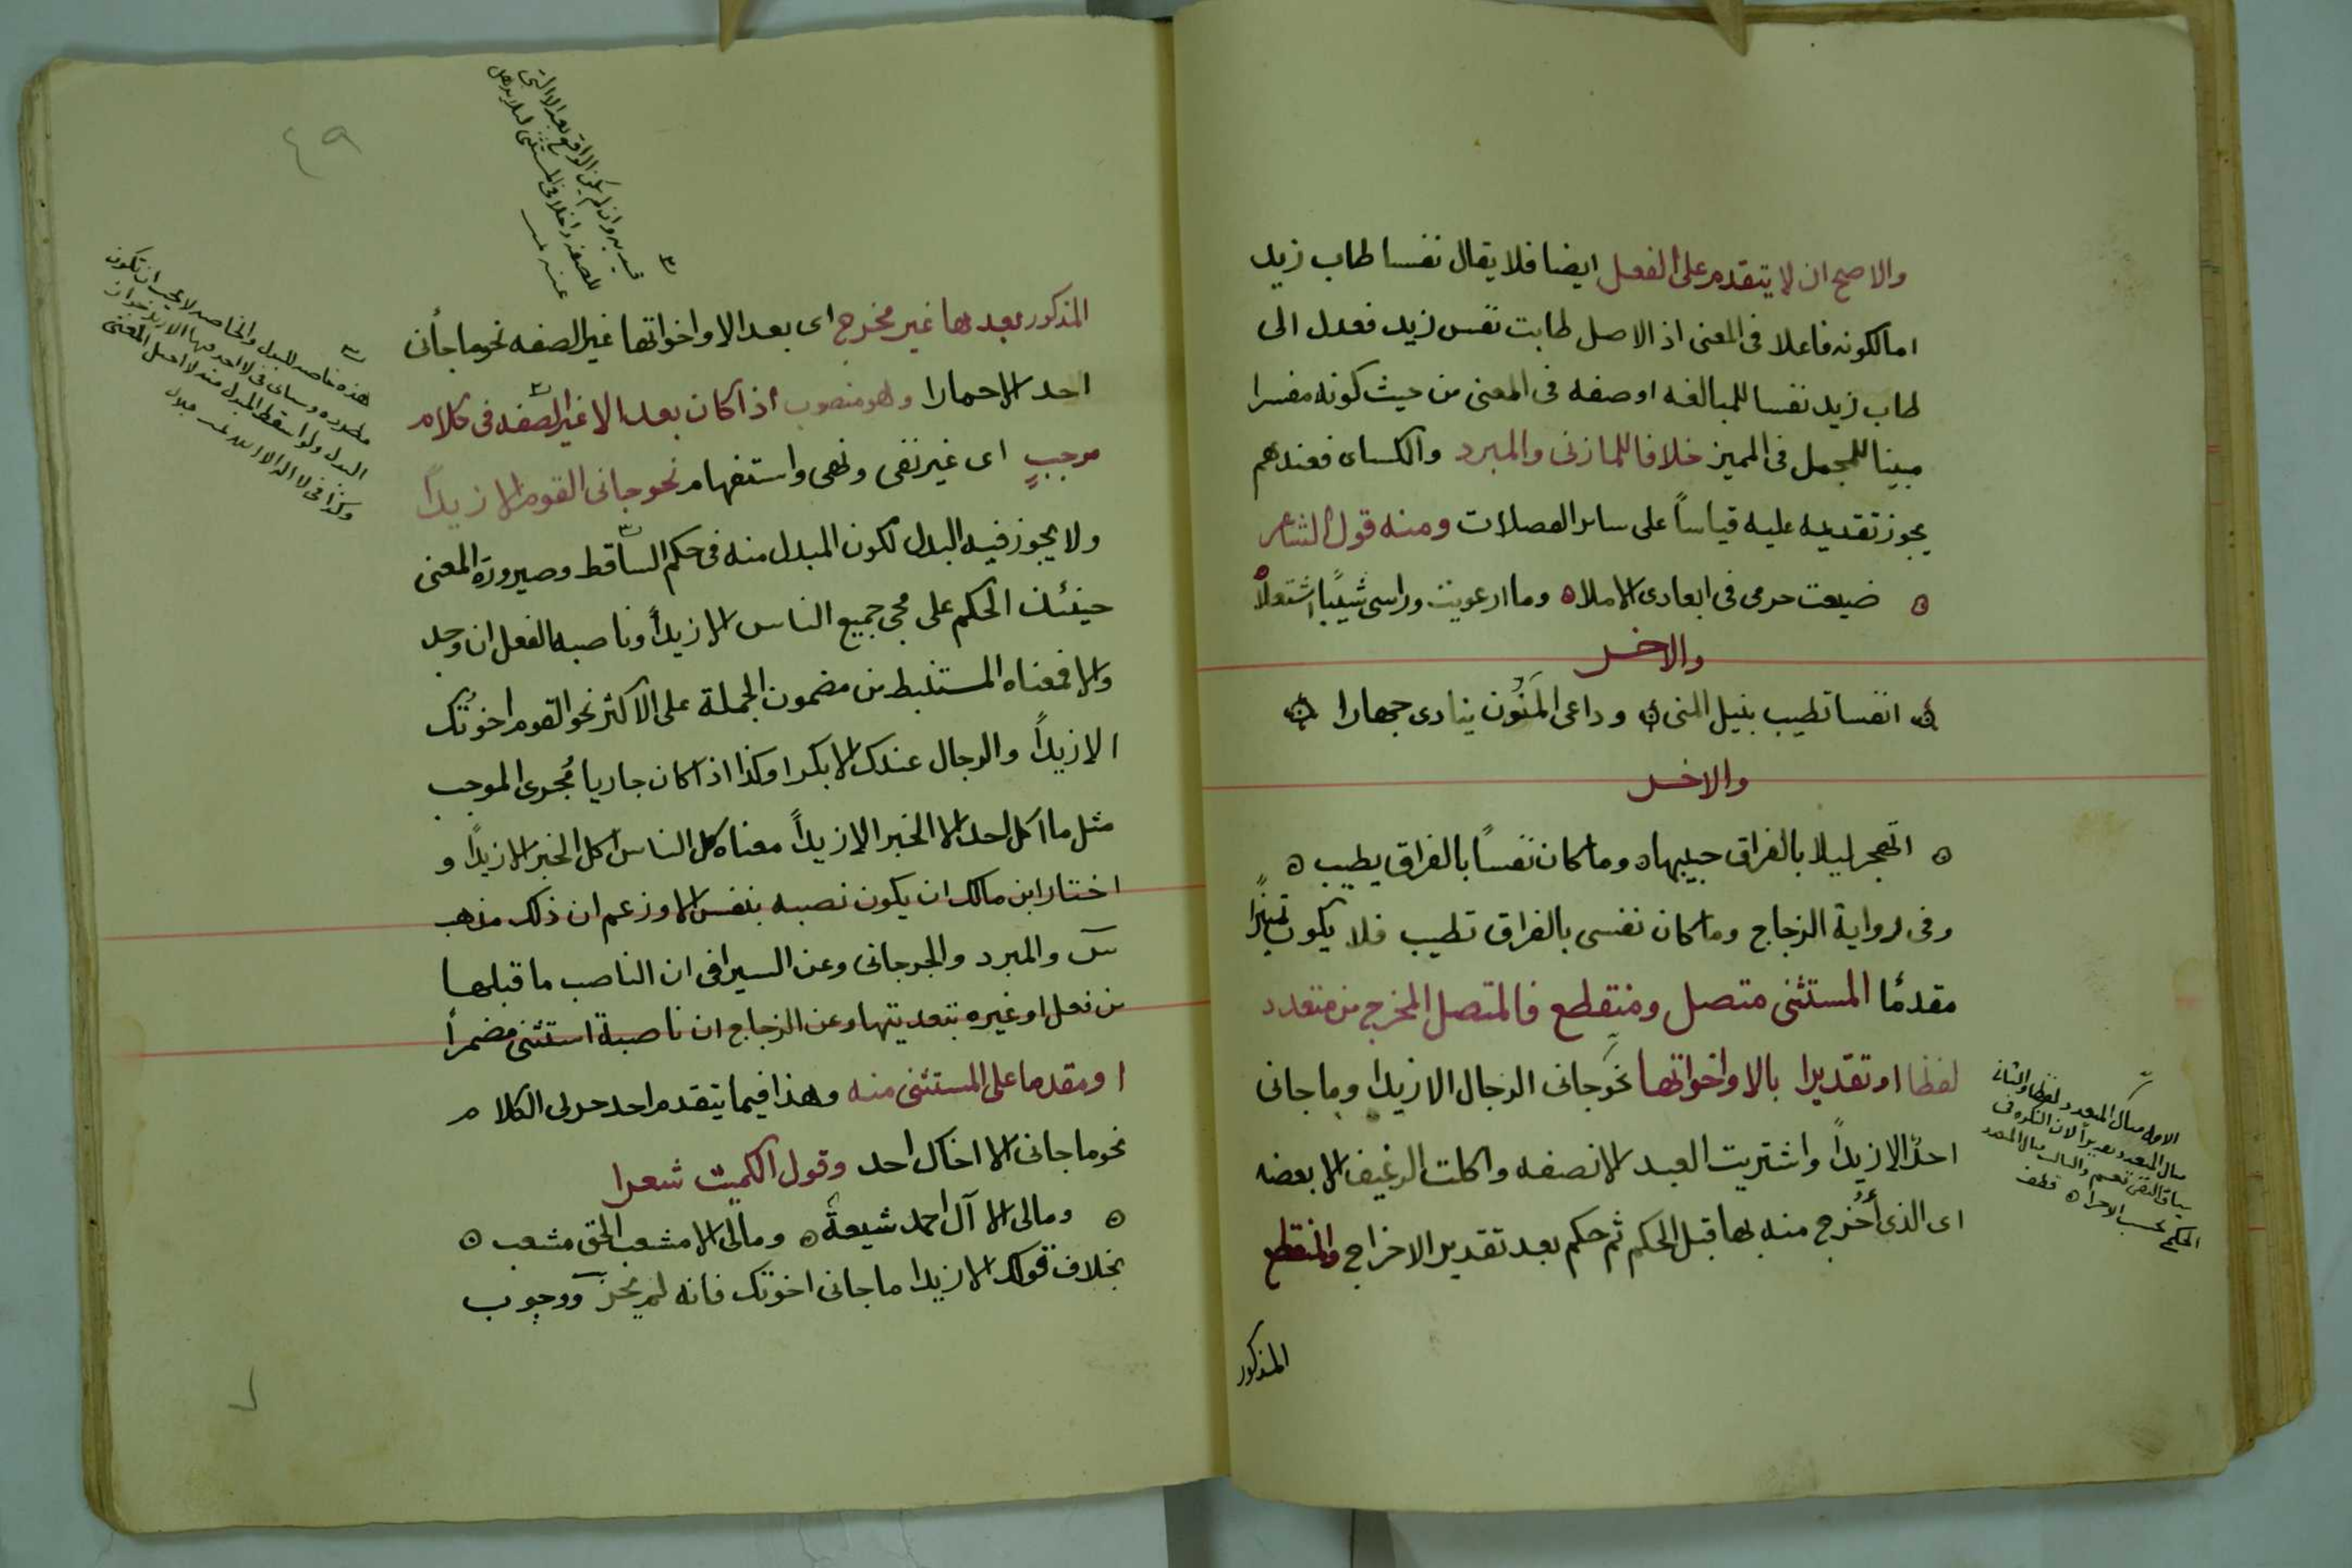 والاصح ان لا يتقدم على الفعل ايضا فلا يقال نفسا طاب زيد
اما لكونه فاعلا فى المعنى اذ الاصل طابت نفس زيد فعدل الى
طاب زيد نفسا للمبالغه او صفه فى المعنى من حيث كونه مفسرا
مبينا للمجمل فى المميز خلافا للمازنى والمبرد والكسائى فعندهم
يجوز تقديمه عليه قياساً على ساير الفضلات ومنه قول الشاعر
ه ضيعت حرمى فى ابعادى الاملاه وما ارعويت وراسى شيباً اشتعلا ه
والاخر
ه انفسا تطيب بنيل المنى ه وداعى المَنُون ينادى جهارا ه
والاخر
ه اتهجر ليلا بالفراق حبيبها ه وما كان نفساً بالفراق يطيب ه
وفى رواية الزجاج وما كان نفسى بالفراق تطيب فلا يكون تميزاً
مقدمًا المستثنى متصل ومنقطع فالمتصل المخرج من متعدد
لفظا او تقديرا بالا واخواتها نحو جانى الرجال الا زيدا وما جانى
احدٌ الا زيداً واشتريت العبد الا نصفه واكلت الرغيف الا بعضه
اى الذى أُخرج منه بها قبل الحكم ثم حكم بعد تقدير الاخراج والمنقطع
المذكور
الاول مثال المتعدد لفظا والثانى
مثال المتعدد تقديراً لان النكره فى
سياق النفى تعم والثالث مثال المتعدد
الحكم بحسب الاجزا ه
٤٩
المذكور بعدها غير مخرج اى بعد الا واخواتها غير الصفه نحو ما جأنى
احد الا حمارا وهو منصوب اذا كان بعد الا غير الصفه فى كلام
موجبٍ اى غير نفى ونهى واستفهام نحو جانى القوم الا زيداً
ولا يجوز فيه البدل لكون المبدل منه فى حكم الساقط وصيرورة المعنى
حينئذ الحكم على مجى جميع الناس الا زيداً وناصبه الفعل ان وجد
والا فمعناه المستنبط من مضمون الجملة على الاكثر نحو القوم اخوتُك
الا زيداً والرجال عندك الا بكرا وكذا اذا كان جاريا مُجرى الموجب
مثل ما اكل احد الا الخبز الا زيداً معناه كل الناس اكل الخبز الا زيداً و
اختار ابن مالك ان يكون نصبه بنفس الا وزعم ان ذلك مذهب
س والمبرد والجرجانى وعن السيرافى ان الناصب ما قبلها
من فعل او غيره بتعديتها وعن الزجاج ان ناصبة استثنى مضمراً
او مقدما على المستثنى منه وهذا فيما يتقدم احد جزئى الكلام
نحو ما جانى الا اخاك احد وقول الكميت شعرا
ه ومالى الا آل احمد شيعةٌ ه ومالى الا مشعب الحق مشعب ه
بخلاف قولك الا زيدا ما جانى اخوتك فانه لم يجز ووجوب
قيد به وان لم يكن الواقع بعد الا التى
للصفه داخلا فى المستثنى لئلا يذهل
عنه
هذه خاصه للبدل والخاصه لا يجب ان تكون
مطرده وسياتى فى لا احد فيها الا زيد جواز
البدل ولو اسقط المبدل منه لاختل المعنى
وكذا فى لا اله الا الله